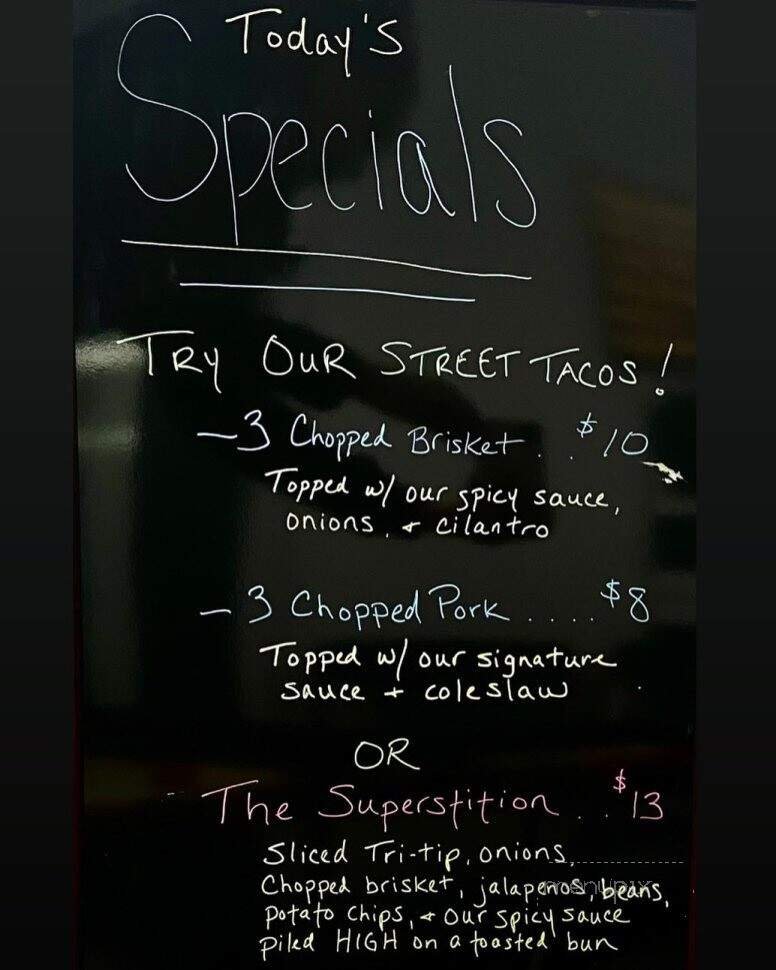 Today's
Specials
TRY OUR STREET TACOS!
- 3 Chopped Brisket . . $10
Topped w/ our spicy sauce,
onions, + cilantro
- 3 Chopped Pork ..... $8
Topped w/ our signature
sauce + coleslaw
OR
- The Superstition . . $13
Sliced Tri-tip, onions,
Chopped brisket, jalapenos, beans,
potato chips, + our spicy sauce
piled HIGH on a toasted bun
menupix